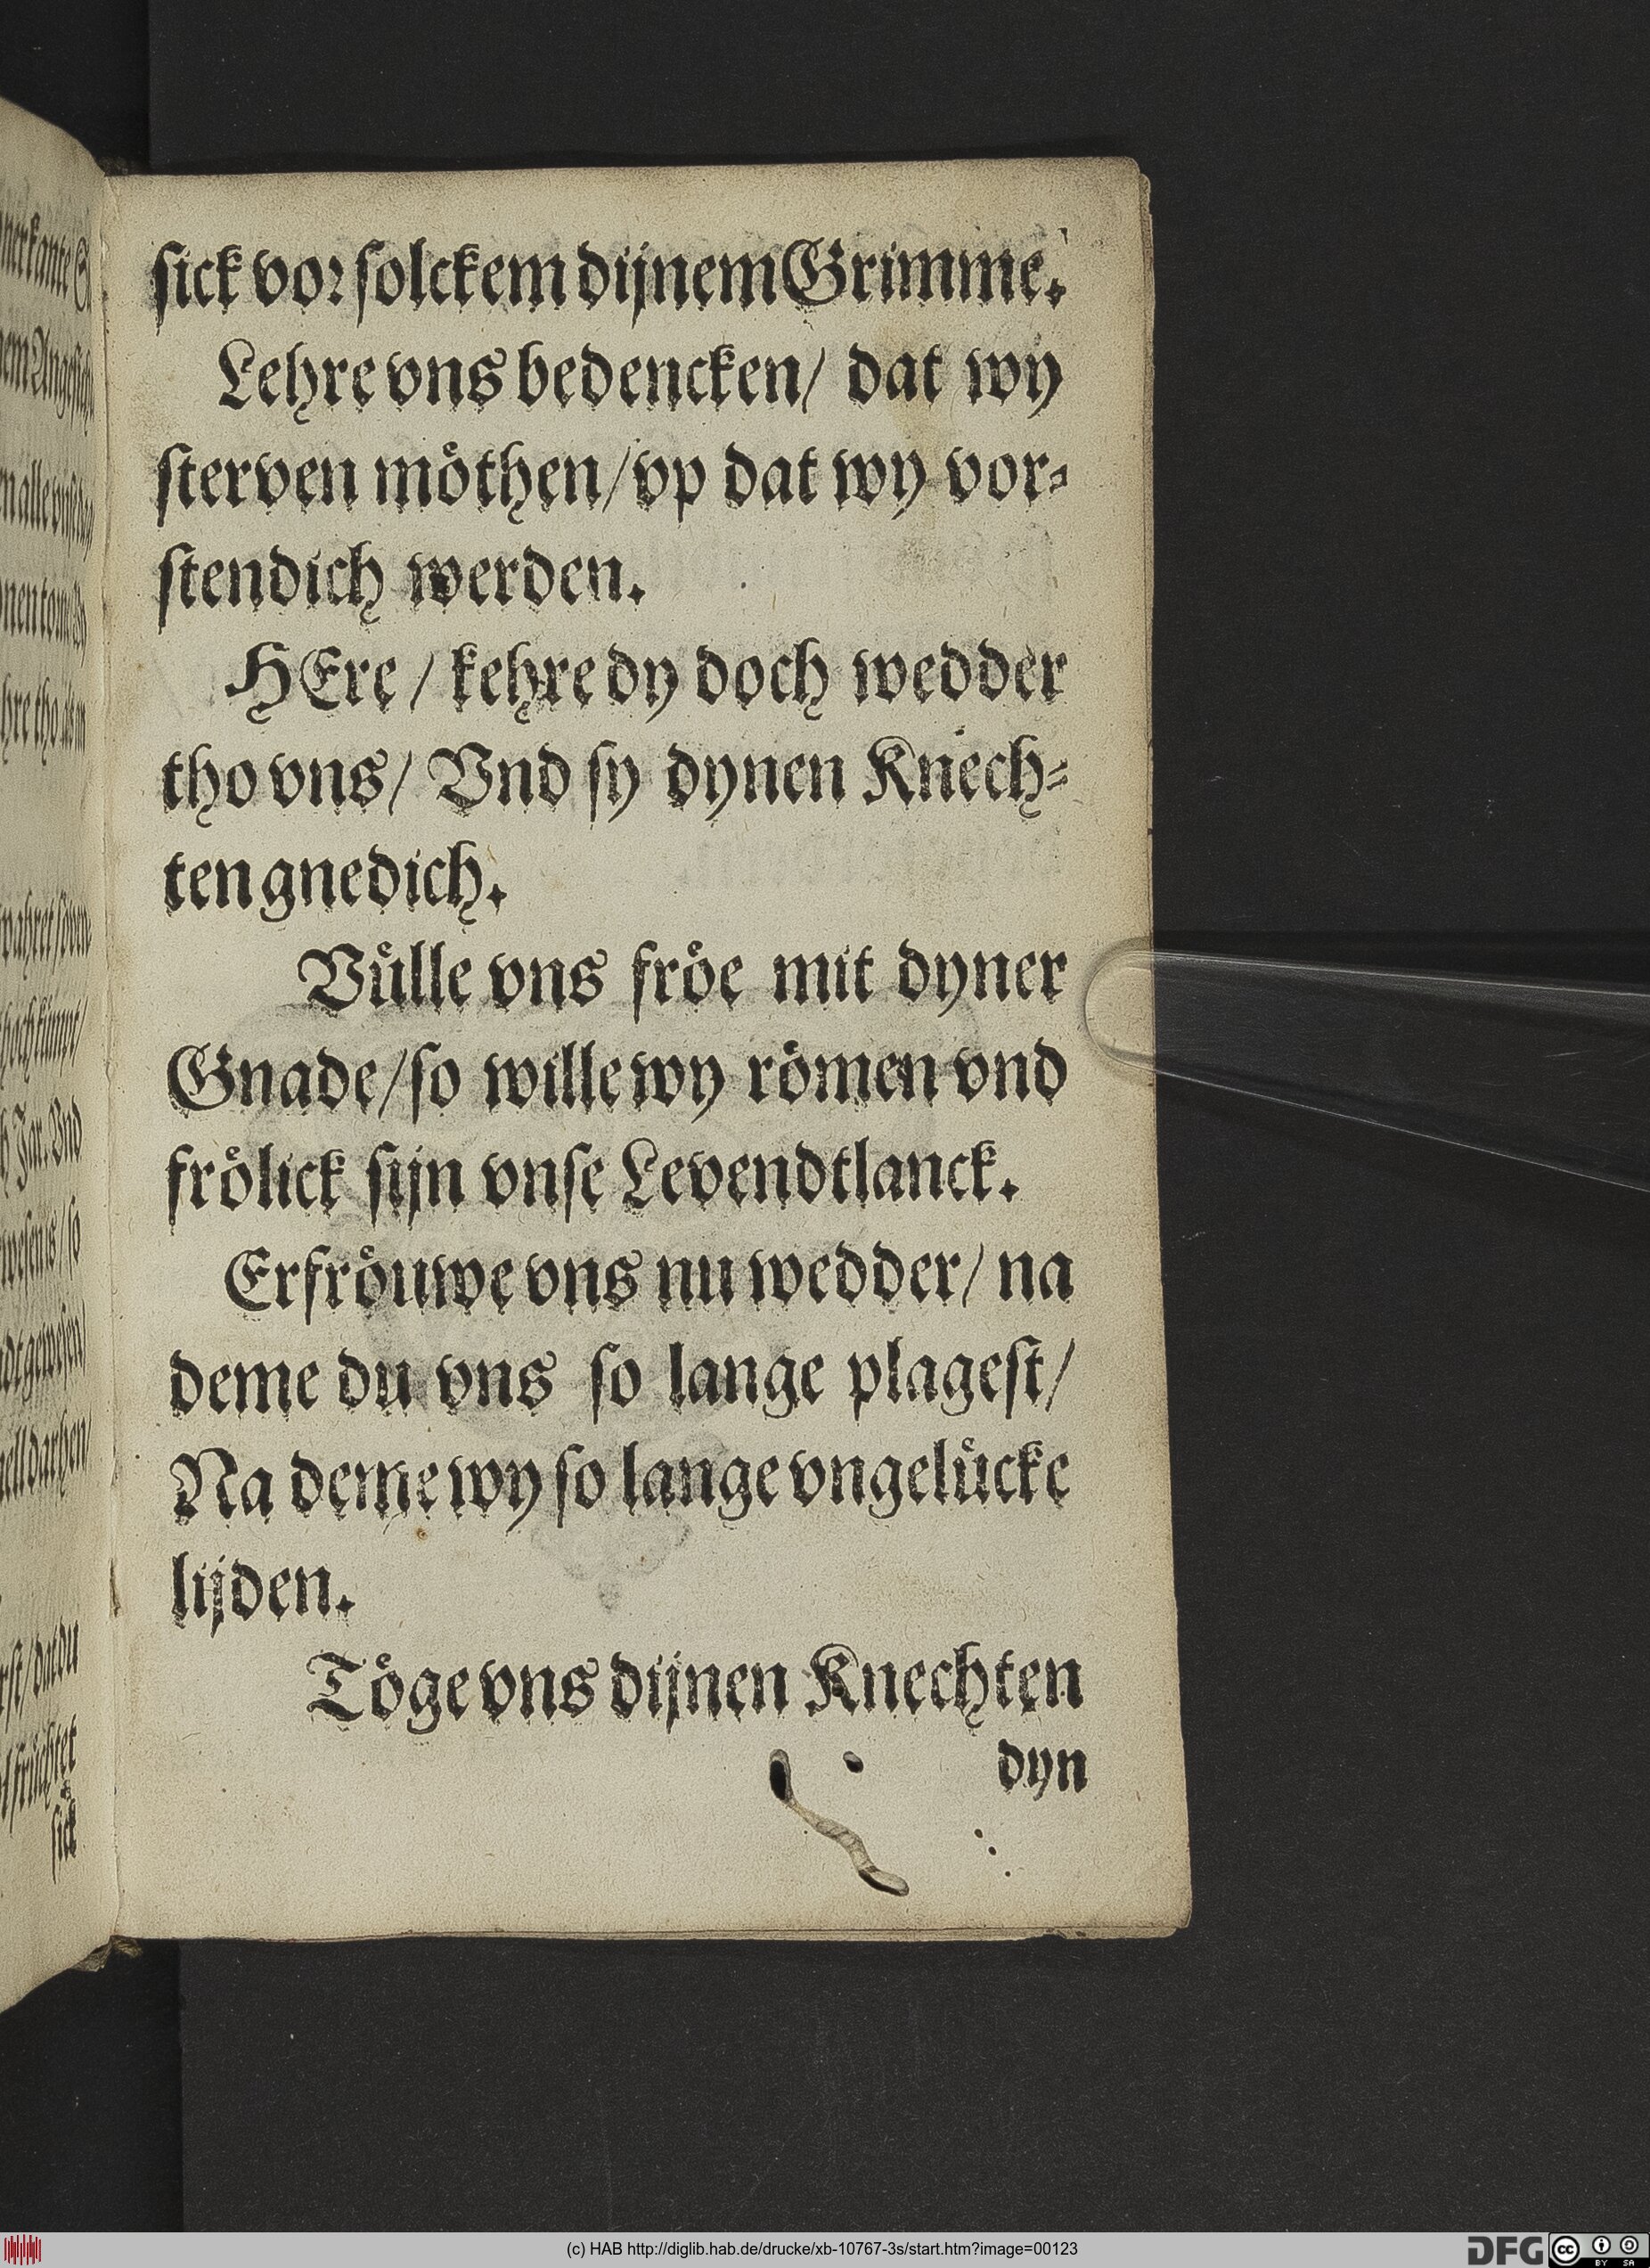 sick vor solckem dijnem Grimme.
Lehre vns bedencken/ dat wy
sterven möthen/ vp dat wy vor-
stendich werden.
HEre / kehre dy doch wedder
tho vns/ Vnd sy dynen Knech-
ten gnedich.
Vülle vns fröe mit dyner
Gnade/ so wille wy römen vnd
frölick sijn vnse Levendtlanck.
Erfröuwe vns nu wedder/ na
deme du vns so lange plagest/
Na deme wy so lange vngelücke
lijden.
Töge vns dijnen Knechten
dyn
(c) HAB http://diglib.hab.de/drucke/xb-10767-3s/start.htm?image=00123
DFG
cc BY SA